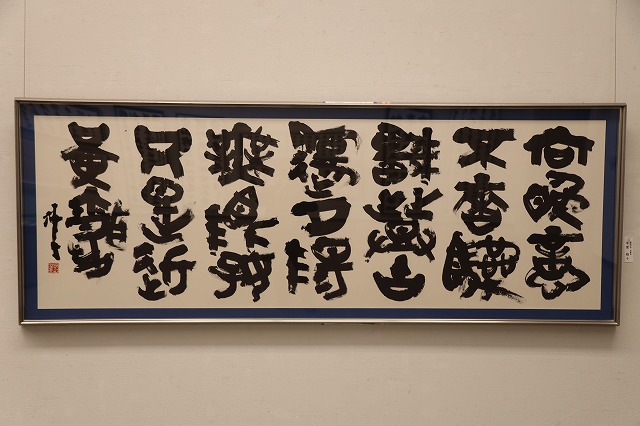 向晩意
不適驅
車登古
原夕陽
無限好
只是近
黄昏